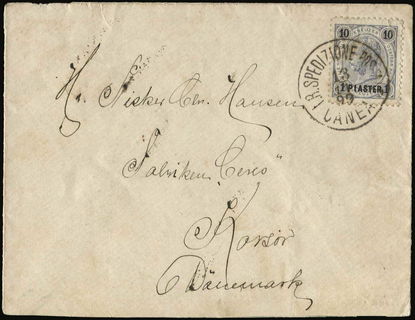 10 10
1 PLASTER 1
I.R. SPEDIZIONE
CANEA
H. Fisker Chr. Hansen
Fabriken "Ceres"
Korsör
Dänemark